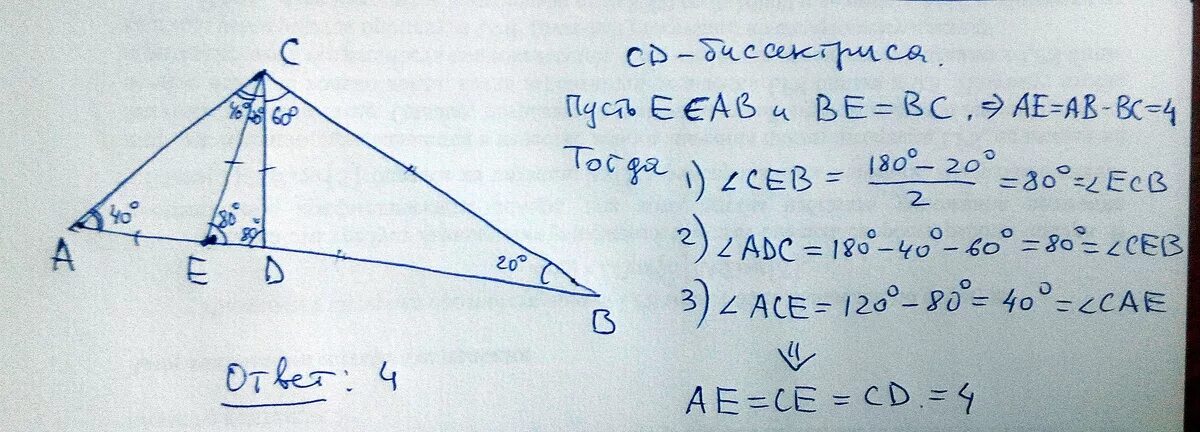 C
40° 20° 60°
A
40°
80°
80°
E
D
20°
B
CD - биссектриса.
Пусть E ∈ AB и BE = BC, ⇒ AE = AB - BC = 4
Тогда
1) ∠CEB = (180° - 20°)/2 = 80° = ∠ECB
2) ∠ADC = 180° - 40° - 60° = 80° = ∠CEB
3) ∠ACE = 120° - 80° = 40° = ∠CAE
⇓
AE = CE = CD = 4
Ответ: 4